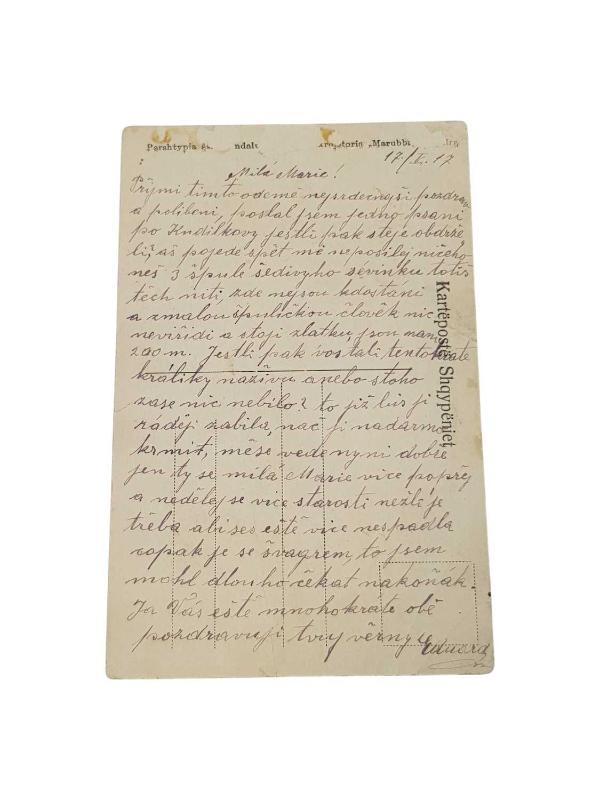 Parahtypia "Marubbi"
17/V. 17
Milá Marie!
Přijmi timto odemě nejsrdečnější pozdrav
a políbeni, poslal jsem jedno psani
po Kndilkovy jestli pak steje obdrže
li, aš pojede spět mě neposilej ničeho
neš 3 špule šedivyho sevinku totiš
těch niti, zde nejsou kdostáni
a zmalou špuličkou člověk nic
neviřidi a stoji zlatku, jsou
200 m. Jestli pak vostali tentokrate
králiky nazivu anebo stoho
zase nic nebilo? to již bis ji
raději zabila, nač ji nadarmo
krmit, měse vede nyni dobře
jen ty se milá Marie vice popřej
a nedělej se vice starosti nežli je
třeba abi ses eště vice nespadla
copak je se švagrem, to jsem
mohl dlouho čekat nakoňák.
Ja Vás eště mnohokrate obě
pozdravuji tvuj věrny Eduard
Kartëpostës Shqypëniet